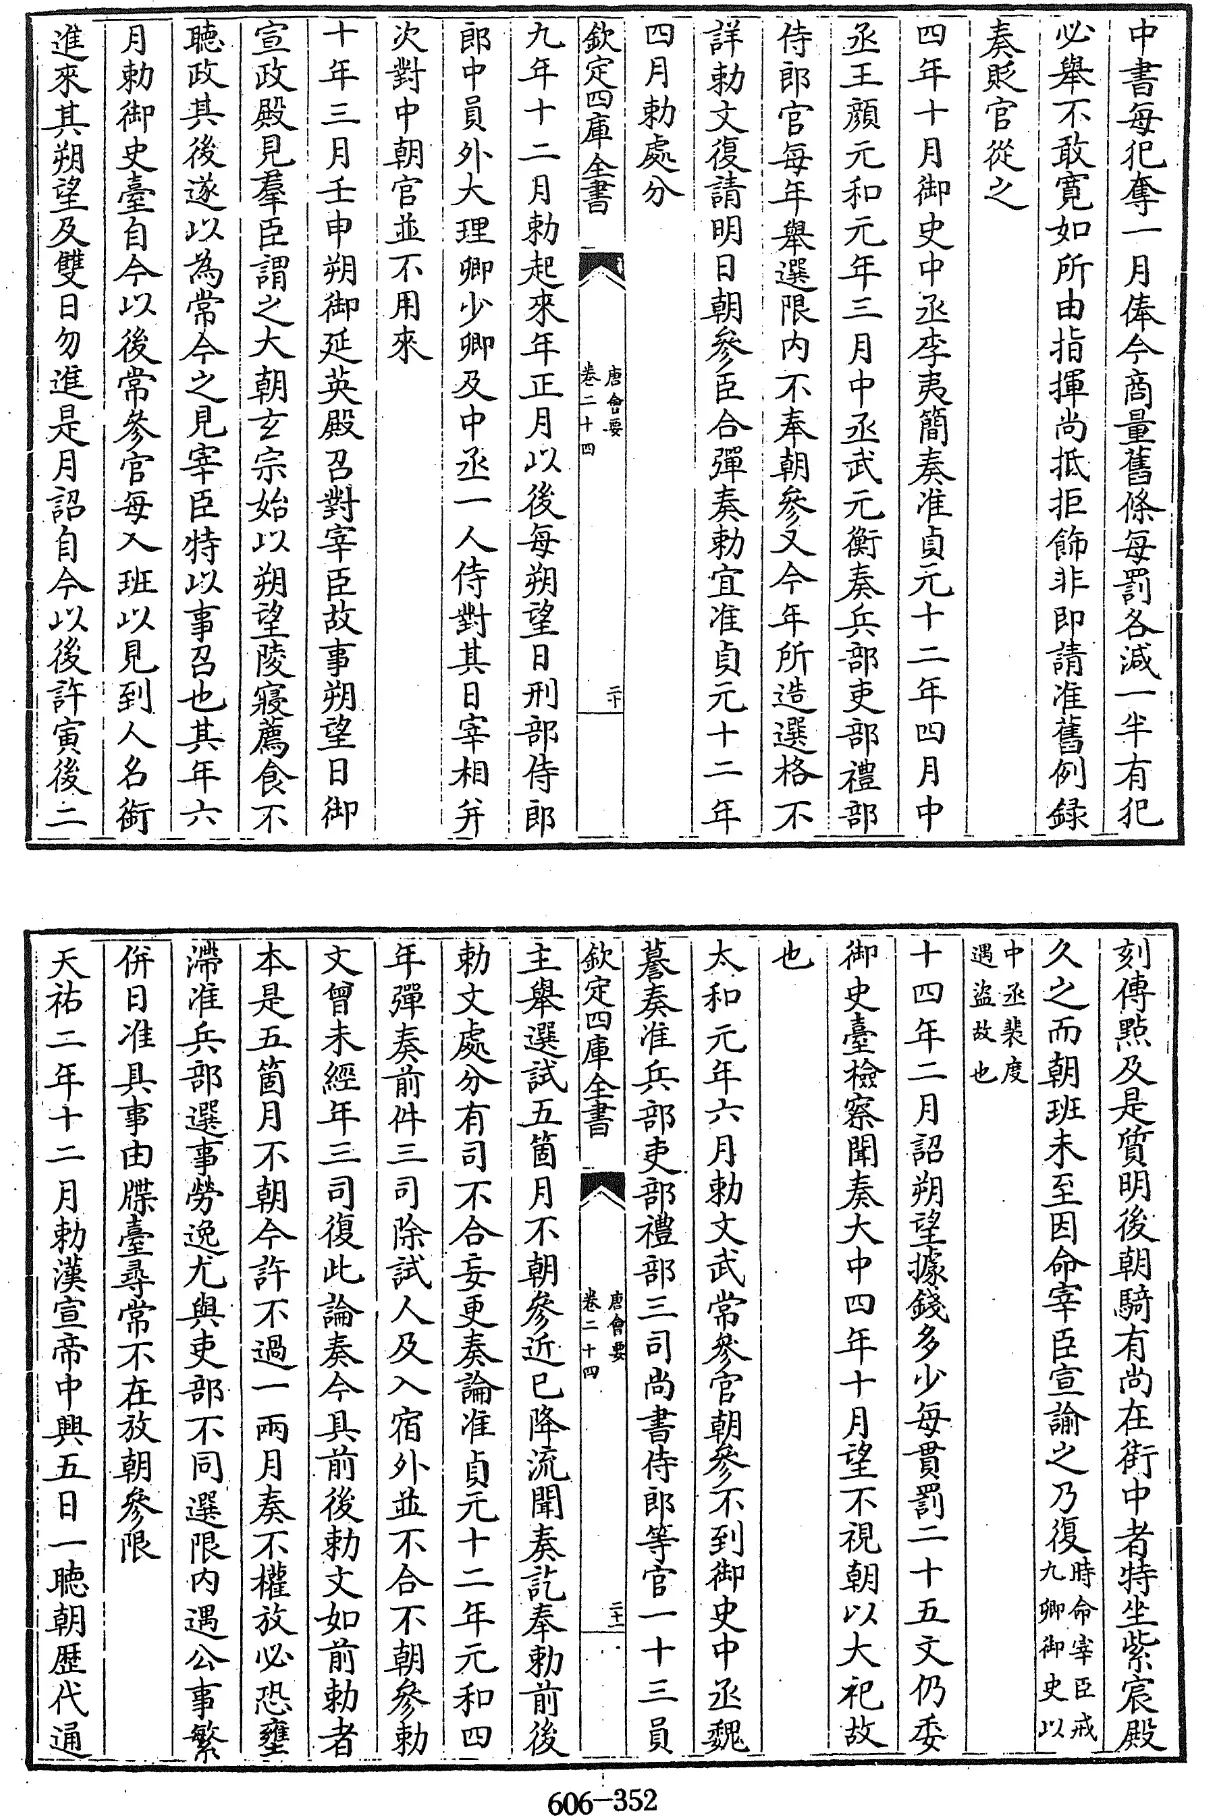 中書每犯奪一月俸今商量舊條每罰各減一半有犯
必舉不敢寛如所由指揮尚抵拒飾非即請准舊例録
奏貶官從之
四年十月御史中丞李夷簡奏准貞元十二年四月中
丞王顔元和元年三月中丞武元衡奏兵部吏部禮部
侍郎官每年舉選限内不奉朝參又今年所造選格不
詳勅文復請明日朝參臣合彈奏勅宜准貞元十二年
四月勅處分
欽定四庫全書
唐會要
卷二十四
二十
九年十二月勅起來年正月以後每朔望日刑部侍郎
郎中員外大理卿少卿及中丞一人侍對其日宰相弁
次對中朝官並不用來
十年三月壬申朔御延英殿召對宰臣故事朔望日御
宣政殿見羣臣謂之大朝玄宗始以朔望陵寢薦食不
聽政其後遂以為常今之見宰臣特以事召也其年六
月勅御史臺自今以後常參官每入班以見到人名銜
進來其朔望及雙日勿進是月詔自今以後許寅後二
刻傳點及是質明後朝騎有尚在街中者特坐紫宸殿
久之而朝班未至因命宰臣宣諭之乃復時命宰臣戒
九卿御史以
中丞裴度
遇盜故也
十四年二月詔朔望據錢多少每貫罰二十五文仍委
御史臺檢察聞奏大中四年十月望不視朝以大祀故
也
太和元年六月勅文武常參官朝參不到御史中丞魏
謩奏准兵部吏部禮部三司尚書侍郎等官一十三員
欽定四庫全書
唐會要
卷二十四
二十一
主舉選試五箇月不朝參近已降流聞奏訖奉勅前後
勅文處分有司不合妄更奏論准貞元十二年元和四
年彈奏前件三司除試人及入宿外並不合不朝參勅
文曾未經年三司復此論奏今具前後勅文如前勅者
本是五箇月不朝今許不過一兩月奏不權放必恐壅
滯准兵部選事勞逸尤與吏部不同選限内遇公事繁
併日准具事由牒臺尋常不在放朝參限
天祐二年十二月勅漢宣帝中興五日一聴朝歷代通
606-352